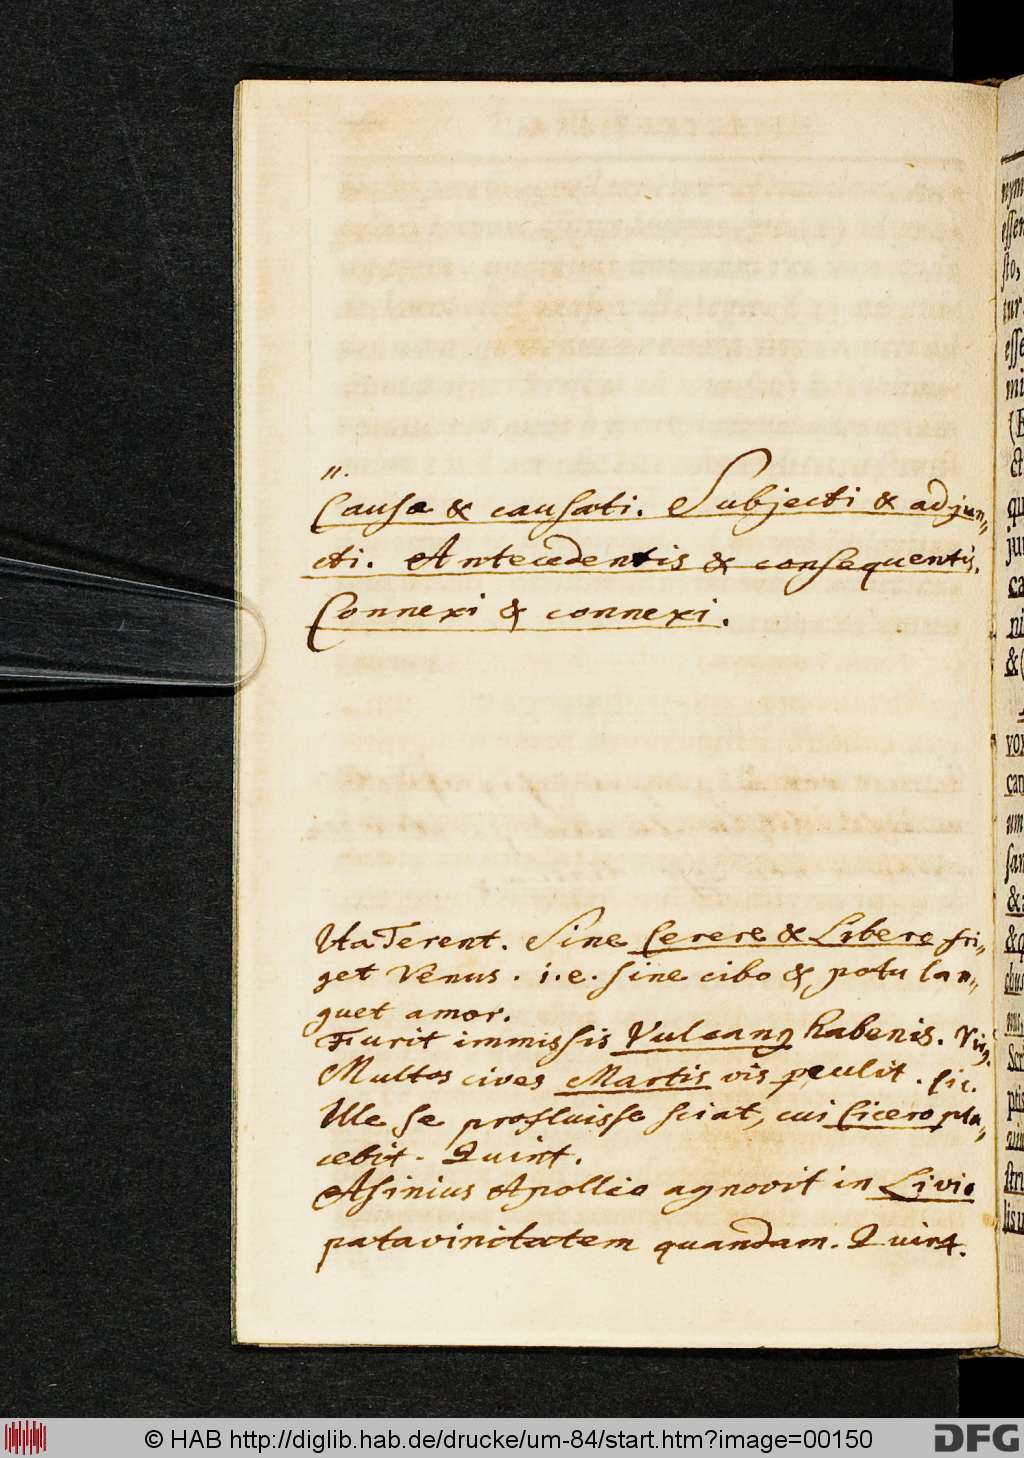 11.
Causæ & causati. Subjecti & adjun„
cti. Antecedentis & consequentis.
Connexi & connexi.
Ita Terent. Sine Cerere & Libero fri„
get Venus. i.e. sine cibo & potu lan„
guet amor.
Furit immissis Vulcanq habenis. Virg.
Multos cives Martis vis peulit. Sic.
Ille se profluisse sciat, cui Cicero pla„
cebit. Quint.
Asinius Apollio agnovit in Livio
patavinitatem quandam. Quint.
essen
sto,
tur
esse
mi
ct
qu
jun
ca
ni
& (
vox
can
um
san
&
& q
Scri
stri
lis u
© HAB http://diglib.hab.de/drucke/um-84/start.htm?image=00150
DFG